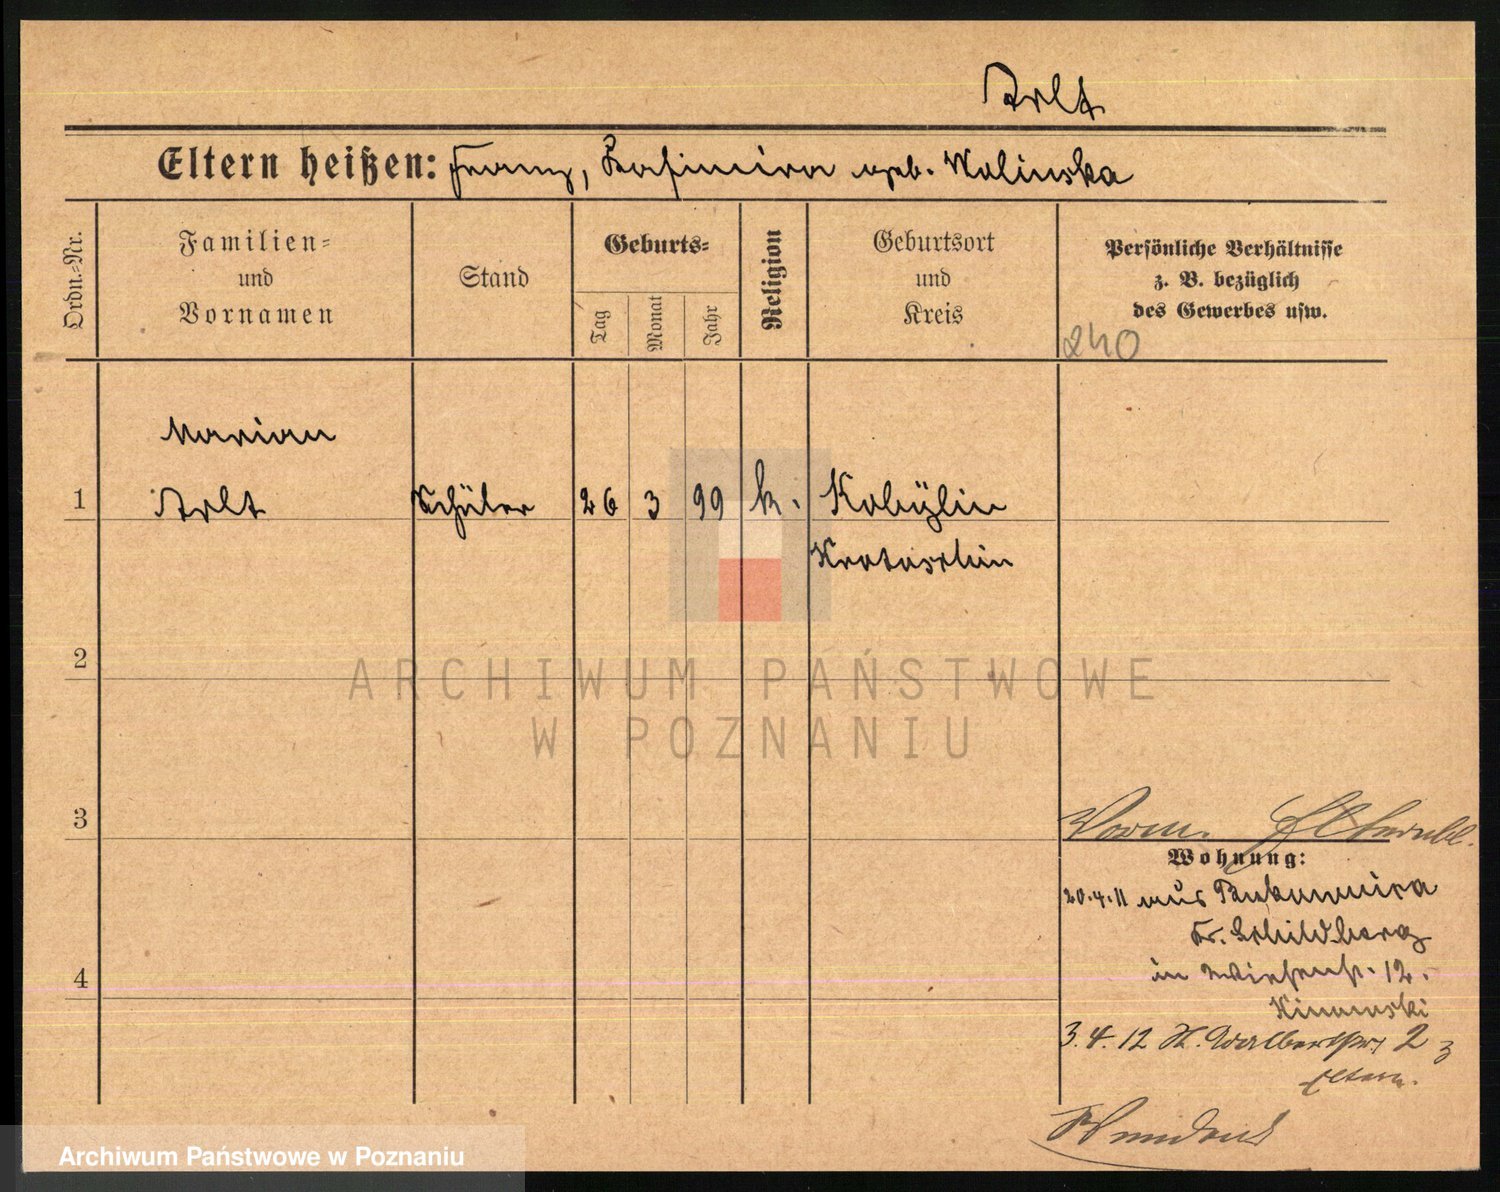 Arlt
Eltern heißen: Franz, Kasimira geb. Walinska
Ordn.=Nr.
Familien=
und
Vornamen
Stand
Geburts=
Tag
Monat
Jahr
Religion
Geburtsort
und
Kreis
Persönliche Verhältnisse
z. B. bezüglich
des Gewerbes usw.
240
Marian
1 Arlt Schüler 26 3 99 k. Kobylin
Krotoschin
2
3
4
Wohnung:
20.4.11 aus
Kr. Schildberg
in Wiesenst. 12.
3.4.12 2
Eltern.
ARCHIWUM PAŃSTWOWE
W POZNANIU
Archiwum Państwowe w Poznaniu